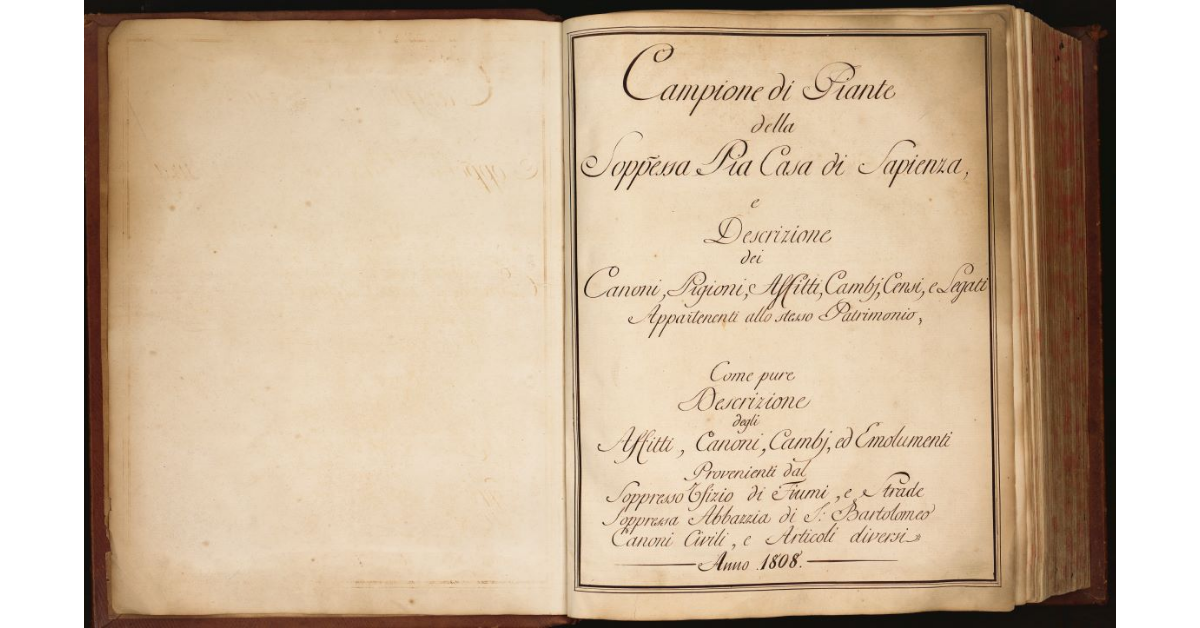 Campione di Piante
della
Soppessa Pia Casa di Sapienza,
e
Descrizione
dei
Canoni, Pigioni, e Affitti, Cambj, Censi, e Legati
Appartenenti allo stesso Patrimonio,
Come pure
Descrizione
degli
Affitti, Canoni, Cambj, ed Emolumenti
Provenienti dal
Soppresso Ufizio di Fiumi, e Strade
Soppressa Abbazzia di S: Bartolomeo
Canoni Civili, e Articoli diversi
Anno 1808.